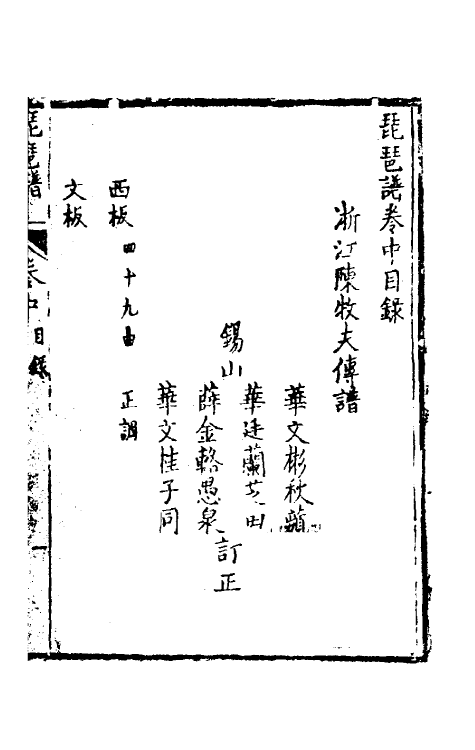 琵琶譜卷中目錄
浙江陳牧夫傳譜
華文彬秋蘋
華廷蘭芝田
錫山
薛金輅愚泉
訂正
華文桂子同
西板四十九曲 正調
文板
琵琶譜 卷中目錄